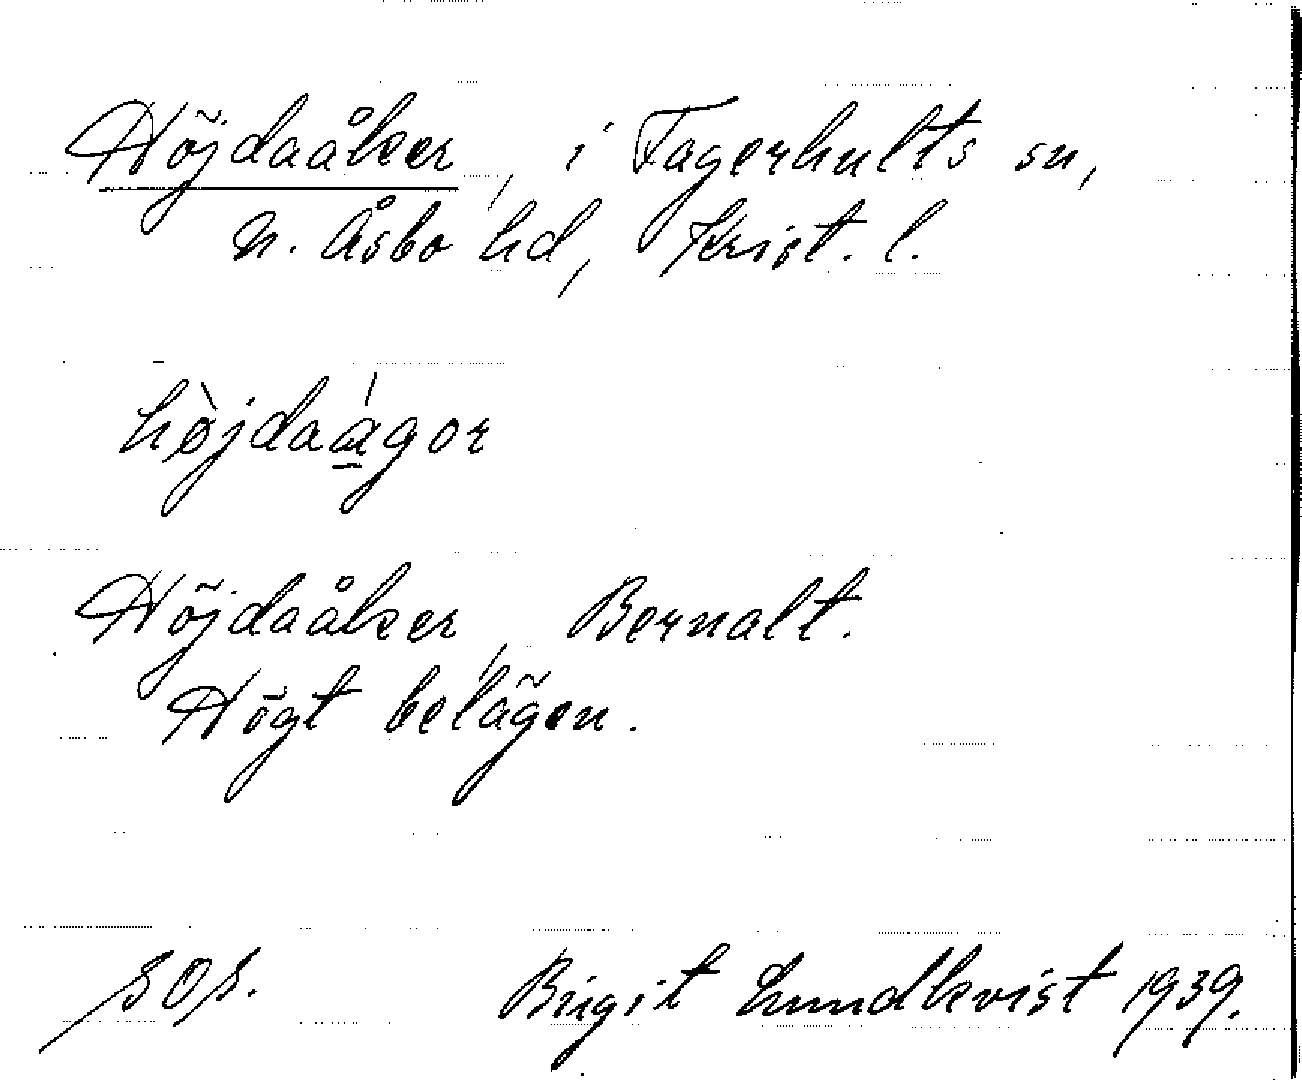 Höjdaåker, i Fagerhults sn,
N. Åsbo hd, Krist. l.
hø̀jdaá̱gor
Höjdaåker, Bernalt.
Högt belägen.
SOS. Birgit Lundkvist 1939.